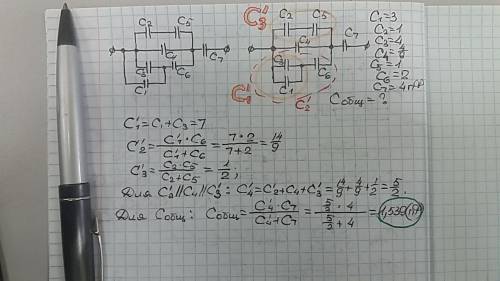 C₂ C₅
C₄ C₇
C₃ C₆
C₁
C₃' C₂ C₅
C₄ C₇
C₃ C₆
C₁' C₁ C₂'
C₁=3
C₂=1
C₃=4
C₄=4/9
C₅=1
C₆=2
C₇=4 пФ
Cобщ=?
C₁'=C₁+C₃=7
C₂'=C₁'·C₆/(C₁'+C₆)=7·2/(7+2)=14/9
C₃'=C₂·C₅/(C₂+C₅)=1/2;
Для C₂'//C₄//C₃': C₄'=C₂'+C₄+C₃'=14/9+4/9+1/2=5/2.
Для Cобщ: Cобщ=C₄'·C₇/(C₄'+C₇)=(5/2·4)/(5/2+4)=1,538(пФ)